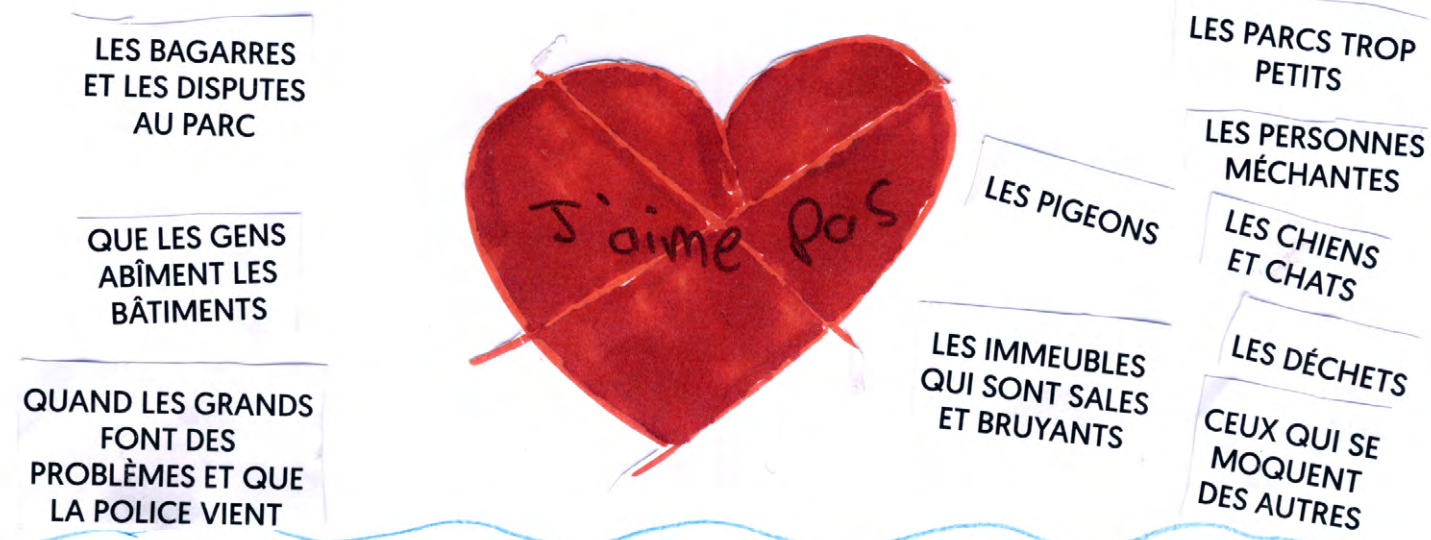 LES BAGARRES
ET LES DISPUTES
AU PARC
QUE LES GENS
ABÎMENT LES
BÂTIMENTS
QUAND LES GRANDS
FONT DES
PROBLÈMES ET QUE
LA POLICE VIENT
J'aime pas
LES PIGEONS
LES IMMEUBLES
QUI SONT SALES
ET BRUYANTS
LES PARCS TROP
PETITS
LES PERSONNES
MÉCHANTES
LES CHIENS
ET CHATS
LES DÉCHETS
CEUX QUI SE
MOQUENT
DES AUTRES